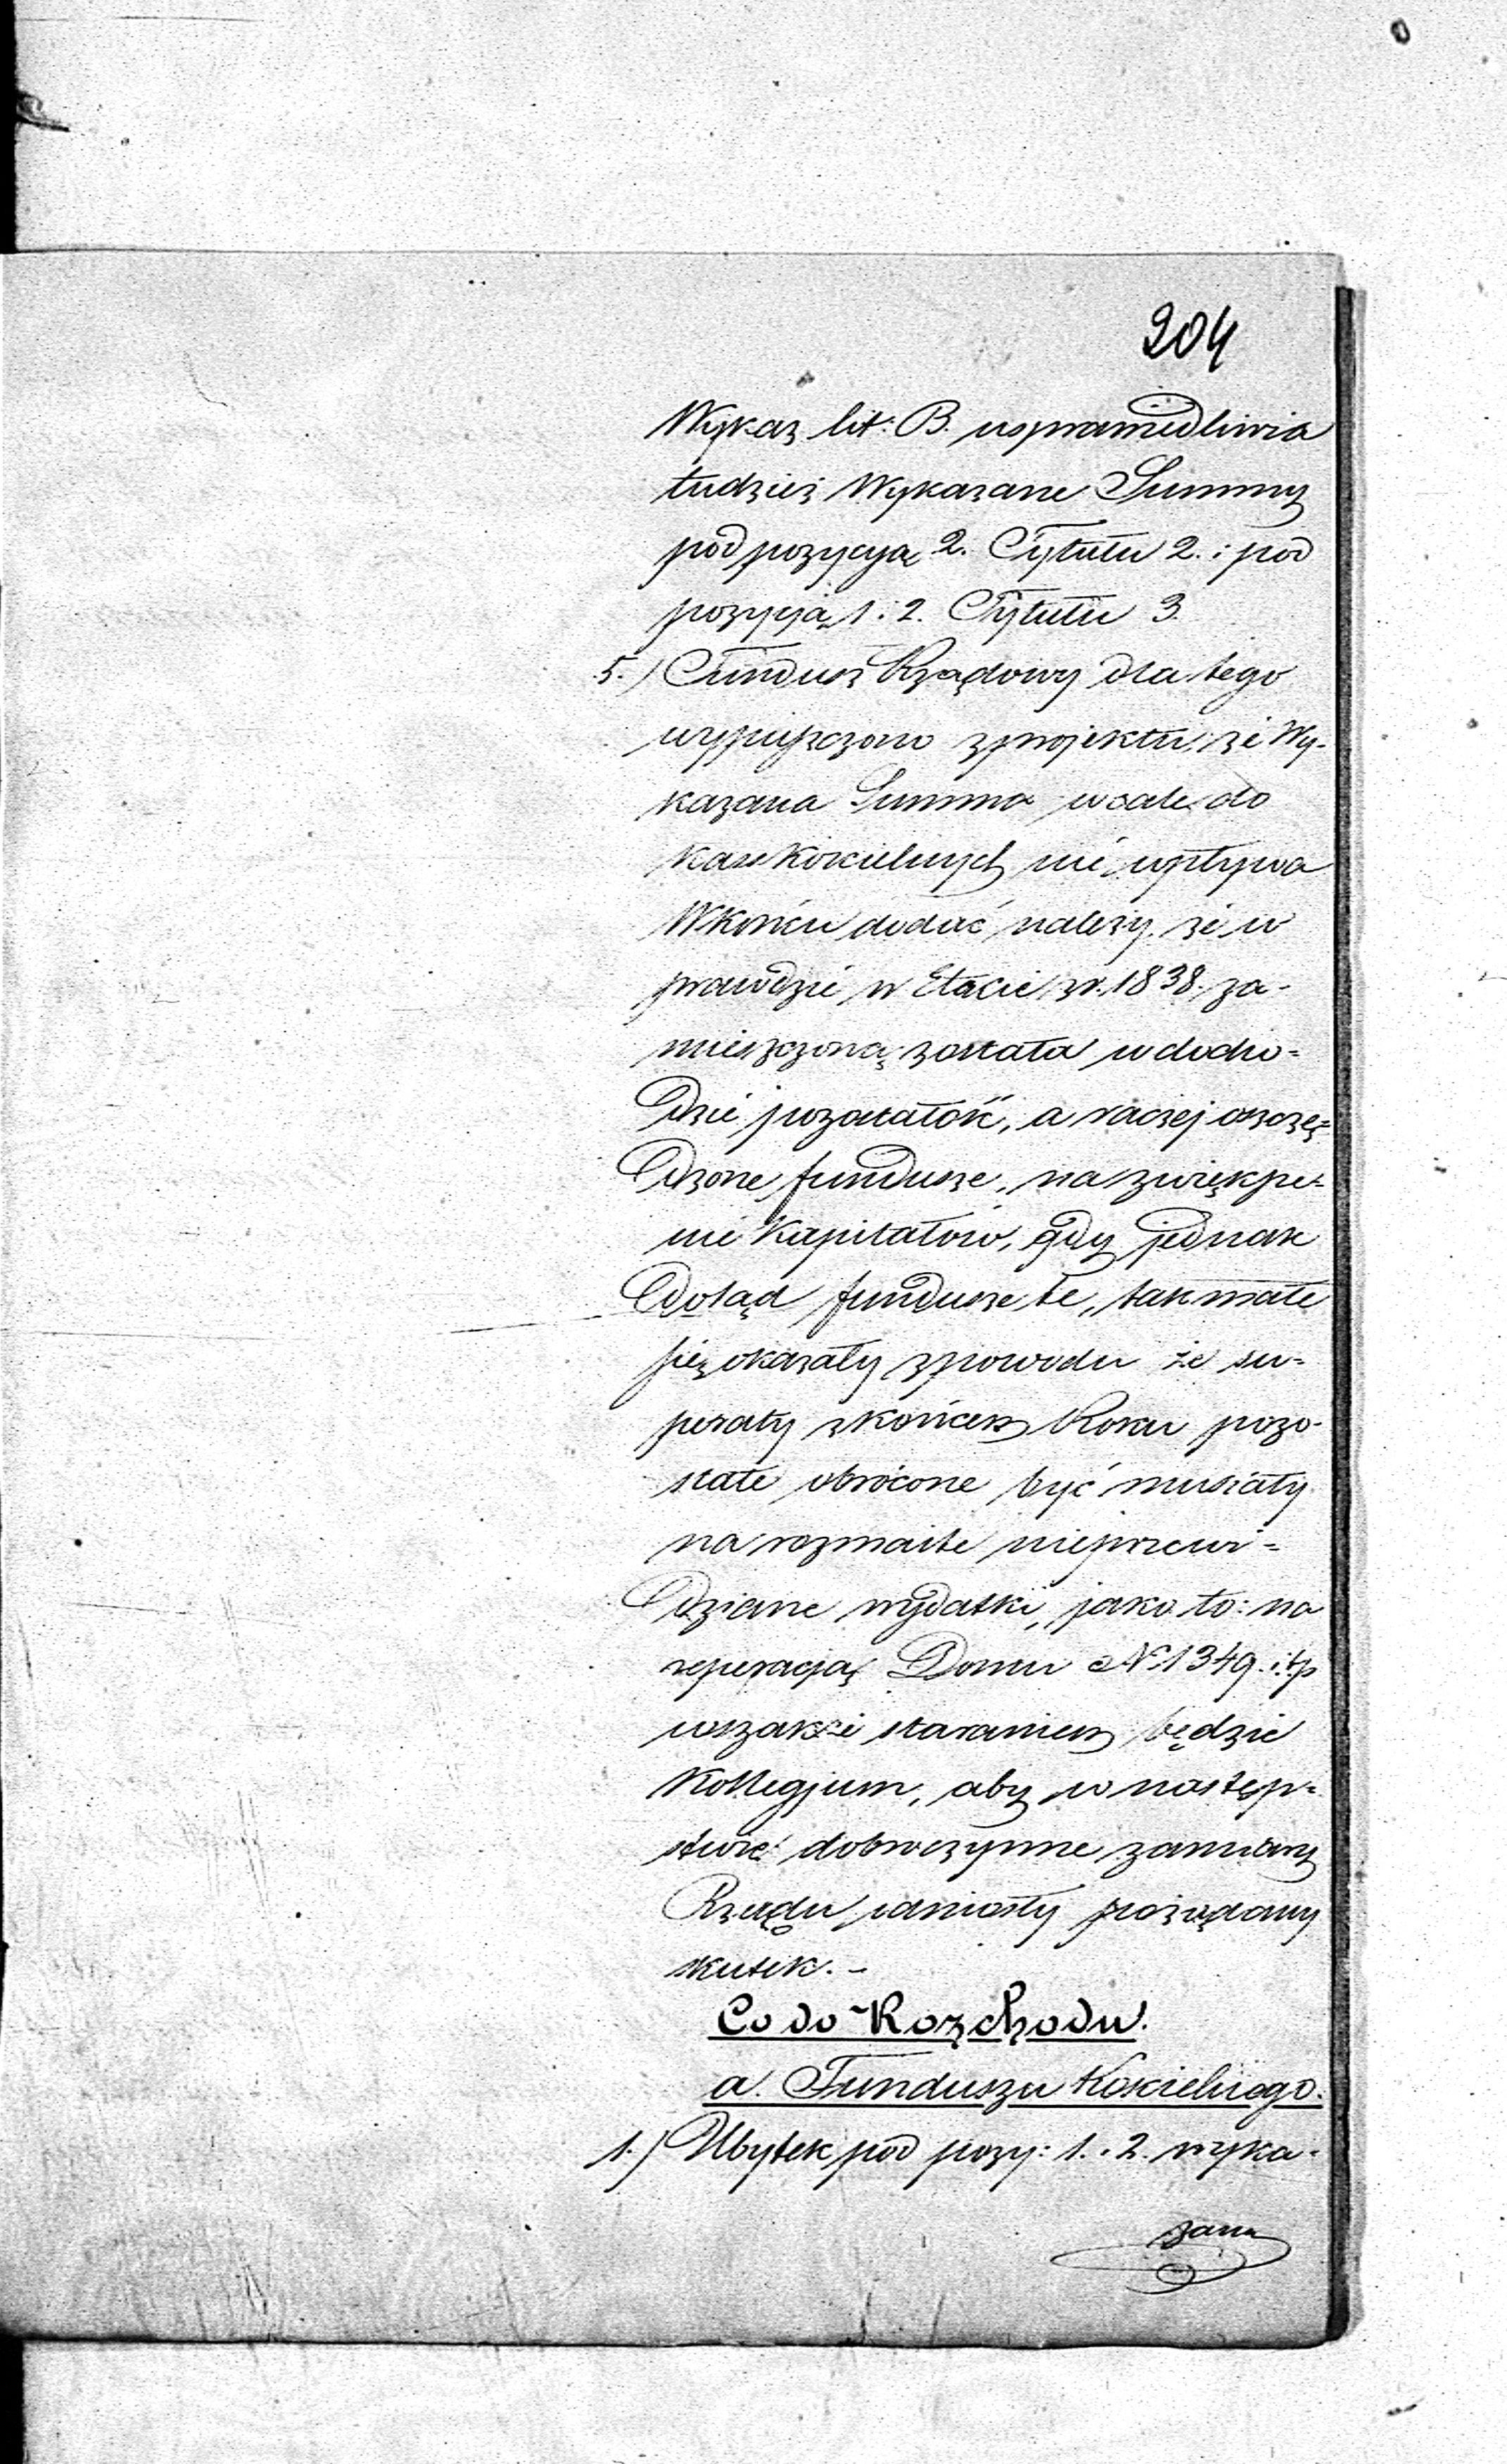 204
Wykaz lit: B. usprawiedliwia
tudzież Wykazane Summy
pod pozycyą 2. Tytułu 2. i pod
pozycją 1. i 2. Tytułu 3.
5.) Fundusz Rządowy dla tego
wypuszczono z projektu, że Wy-
kazana Summa wcale do
kass Kościelnych nie wpływa
W końcu dodać należy, że w
prawdzie w Etacie z r. 1838. za-
mieszczoną została w docho=
dzie pozostałość, a raczej oszczę=
dzone fundusze, na zwiększe=
nie Kapitałów, gdy jednak
dotąd fundusze te, tak małe
się okazały z powodu że su=
peraty z końcem Roku pozo-
stałe obrócone być musiały
na rozmaite nieprzewi=
dziane wydatki, jako to: na
reperacją Domu No 1349. i t. p
wszakże staraniem będzie
Kollegjum, aby w następ=
stwie dobroczynne zamiary
Rządu odniosły pożądany
skutek. –
Co do Rozchodu.
a. Funduszu Kościelnego.
1.) Ubytek pod pozy: 1. i 2. wyka=
zany